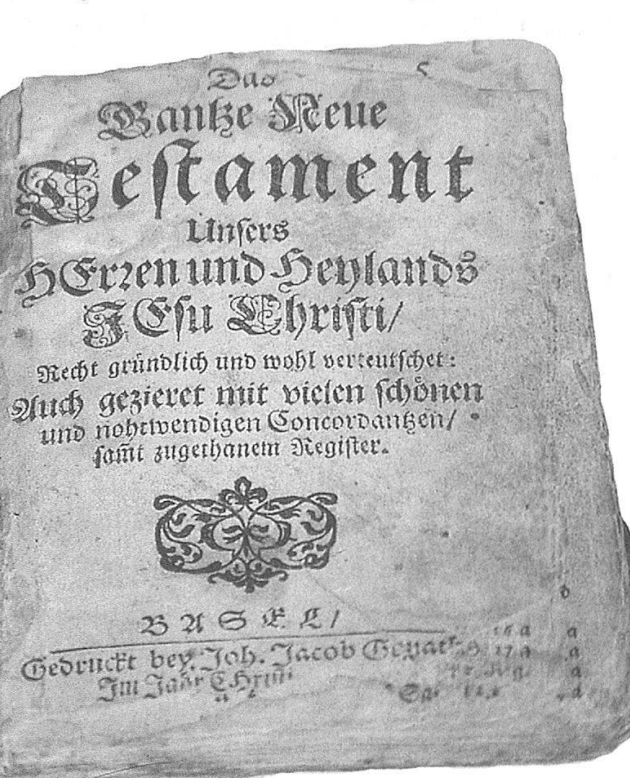 Das
Gantze Neue
Testament
Unsers
HErren und Heylands
JEsu Christi/
Recht gründlich und wohl verteutschet:
Auch gezieret mit vielen schönen
und nohtwendigen Concordantzen/
sam̄t zugethanem Register.
BASEL/
Gedruckt bey Joh. Jacob
Im Jahr Christi